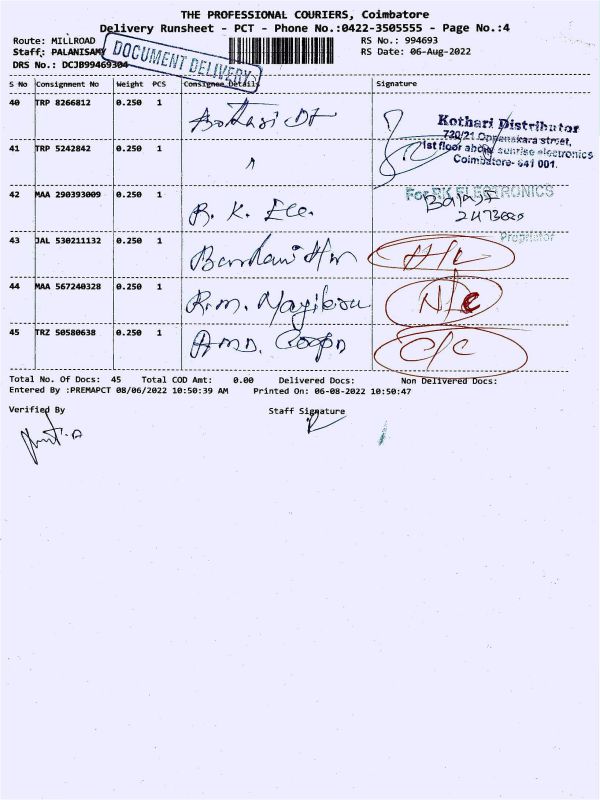 THE PROFESSIONAL COURIERS, Coimbatore
Delivery Runsheet - PCT - Phone No.:0422-3505555 - Page No.:4
Route: MILLROAD RS No.: 994693
Staff: PALANISAMY RS Date: 06-Aug-2022
DRS No.: DCJB99469304
DOCUMENT DELIVERY
S No Consignment No Weight PCS Consignee Details Signature
40 TRP 8266812 0.250 1
Kothari Distributor
720/21 Oppanakara street,
1st floor above sunrise electronics
Coimbatore- 641 001.
41 TRP 5242842 0.250 1
42 MAA 290393009 0.250 1 R. K. Ele.
For RK ELECTRONICS
Proprietor
43 JAL 530211132 0.250 1
44 MAA 567240328 0.250 1 R.M. N/C
45 TRZ 50580638 0.250 1 C/C
Total No. Of Docs: 45 Total COD Amt: 0.00 Delivered Docs: Non Delivered Docs:
Entered By :PREMAPCT 08/06/2022 10:50:39 AM Printed On: 06-08-2022 10:50:47
Verified By Staff Signature